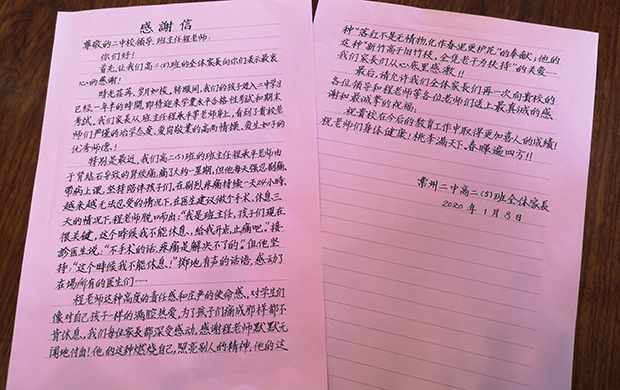 感謝信
尊敬的二中校领导、班主任程老师:
你们好!
首先,让我们高二(5)班的全体家长向你们表示最衷
心的感谢!
时光荏苒、岁月如梭,转眼间,我们的孩子进入二中学习
已经一年半的時間,即将迎来学業水平合格性考試和期末
考試,我们家長从班主任程承平等老师身上,看到了貴校老
师们严谨的治学态度、爱崗敬業的高尚情操、爱生如子的
优秀师德!
特别是最近,我们高二(5)班的班主任程承平老师由
于肾结石导致的肾绞痛,痛了大约一星期,但他每天强忍剧痛、
带病上课,坚持陪伴孩子们,在剧烈疼痛持续一天24小時、
越来越无法忍受的情况下,在医生建议做个手术、休息三
天的情况下,程老师脱口而出:“我是班主任,孩子们现在
很关键,这个時候我不能休息,给我开点止痛吧。”接
診医生说:“不手术的话,疼痛是解决不了的。”但他坚
持:“这个時候我不能休息!”掷地有声的话语,感动了
在場所有的医生们……
程老师这种高度的责任感和庄严的使命感,对学生们
像对自己孩子一样的满腔热爱,为了孩子们痛成那样都不
肯休息,我们每位家長都深受感动,感谢程老师默默无
闻地付出!他的这种燃烧自己,照亮别人的精神,他的这
种“落红不是无情物,化作春泥更护花”的奉献;他的
这种“新竹高于旧竹枝,全凭老干为扶持”的关爱……
我们家長们从心底里感激!!
最后,请允许我们全体家長们再一次向貴校的
各位领导和程老师等各位老师们送上最真誠的感
谢和最诚挚的祝福:
祝貴校在今后的教育工作中取得更加喜人的成績!
祝老师们身体健康!桃李满天下、春暉遍四方!!
常州二中高二(5)班全体家長
2020年1月8日